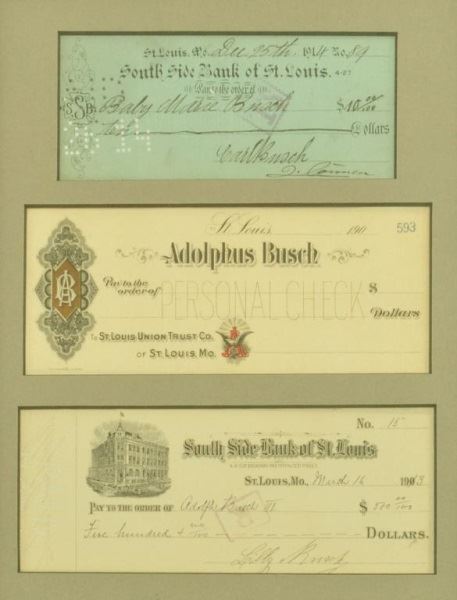 St. Louis, Mo. Dec 25th 1914 No. 89
South Side Bank of St. Louis. 4-27
Pay to the order of
Baby Marie Busch $10 00/100
Ten Dollars
Carl Busch
St. Louis 190 593
Adolphus Busch
Pay to the
order of PERSONAL CHECK $
Dollars
To St. Louis Union Trust Co.
of St. Louis, Mo.
No. 15
South Side Bank of St. Louis
St. Louis, Mo., March 16 1903
Pay to the order of Adolph Busch III $ 500 00/100
Five hundred & no/100 Dollars
Lilly Busch